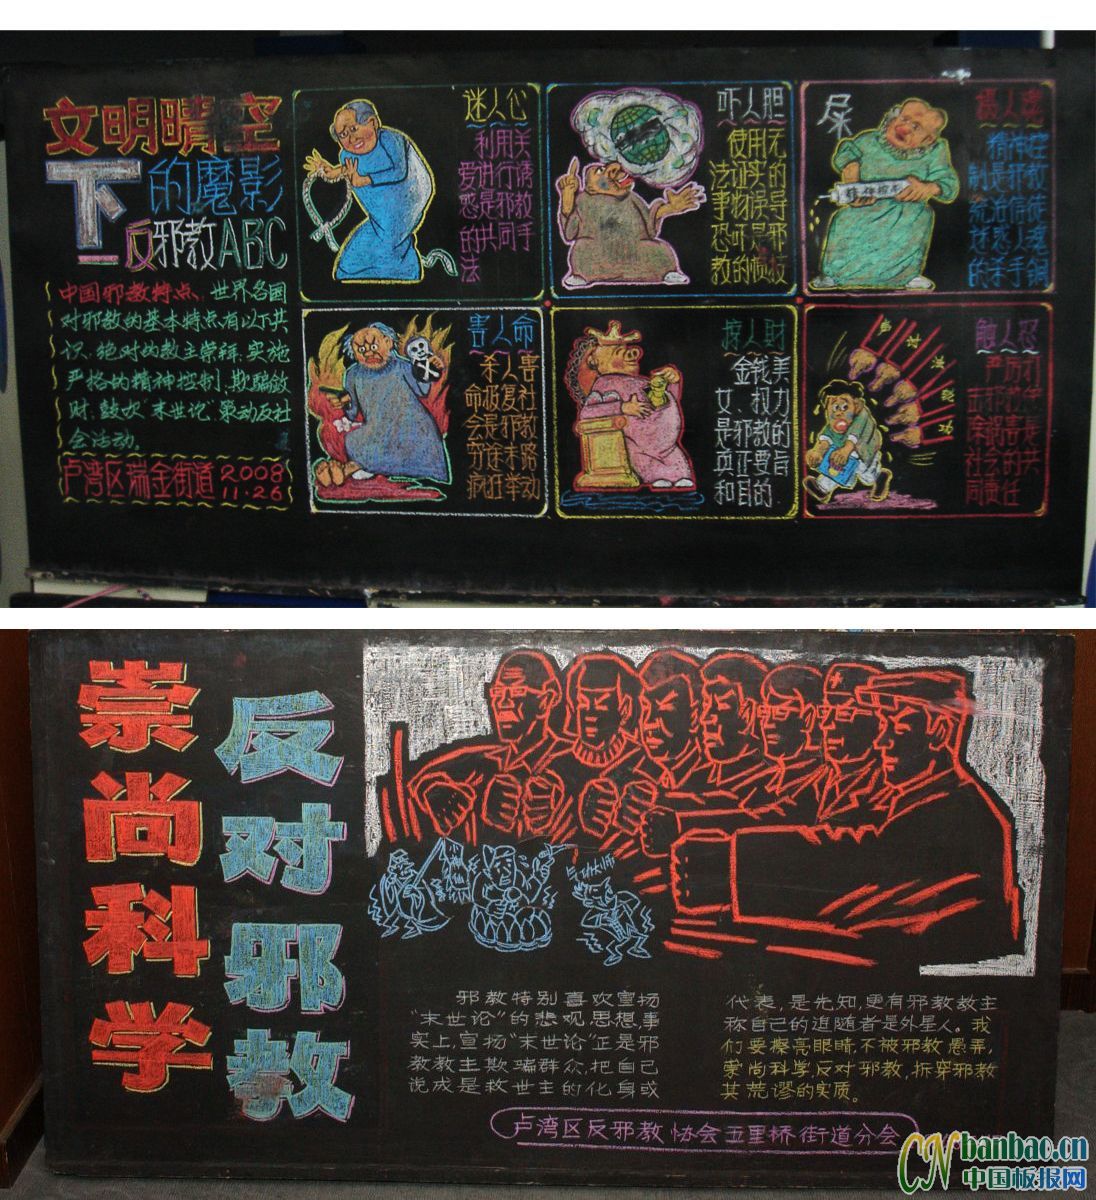 文明晴空
下的魔影
反邪教ABC
中国邪教特点:世界各国
对邪教的基本特点有以下共
识:绝对的教主崇拜、实施
严格的精神控制、欺骗敛
财、鼓吹“末世论”策动反社
会活动.
卢湾区瑞金街道2008
11.26
迷人心
利用关
爱进行诱
惑是邪教
的共同手
法
吓人胆
使用无
法证实的
事物误导
恐吓是邪
教的惯技
屎
摄人魂
精神在
制是邪教
统治信徒
迷惑人魂
的杀手锏
害人命
杀人害
命报复社
会是邪教
穷途末路
疯狂举动
捞人财
金钱美
女、权力
是邪教的
真正要旨
和目的.
触人怒
严厉打
击邪教
除祸害是
社会的共
同责任
讨
法
功
崇尚科学
反对邪教
功大师
邪教特别喜欢宣扬
“末世论”的悲观思想,事
实上,宣扬“末世论”正是邪
教教主欺骗群众,把自己
说成是救世主的化身或
代表,是先知,更有邪教教主
称自己的追随者是外星人。我
们要擦亮眼睛,不被邪教愚弄,
崇尚科学反对邪教,拆穿邪教
其荒谬的实质。
卢湾区反邪教协会五里桥街道分会
CN banbao.cn
中国板报网